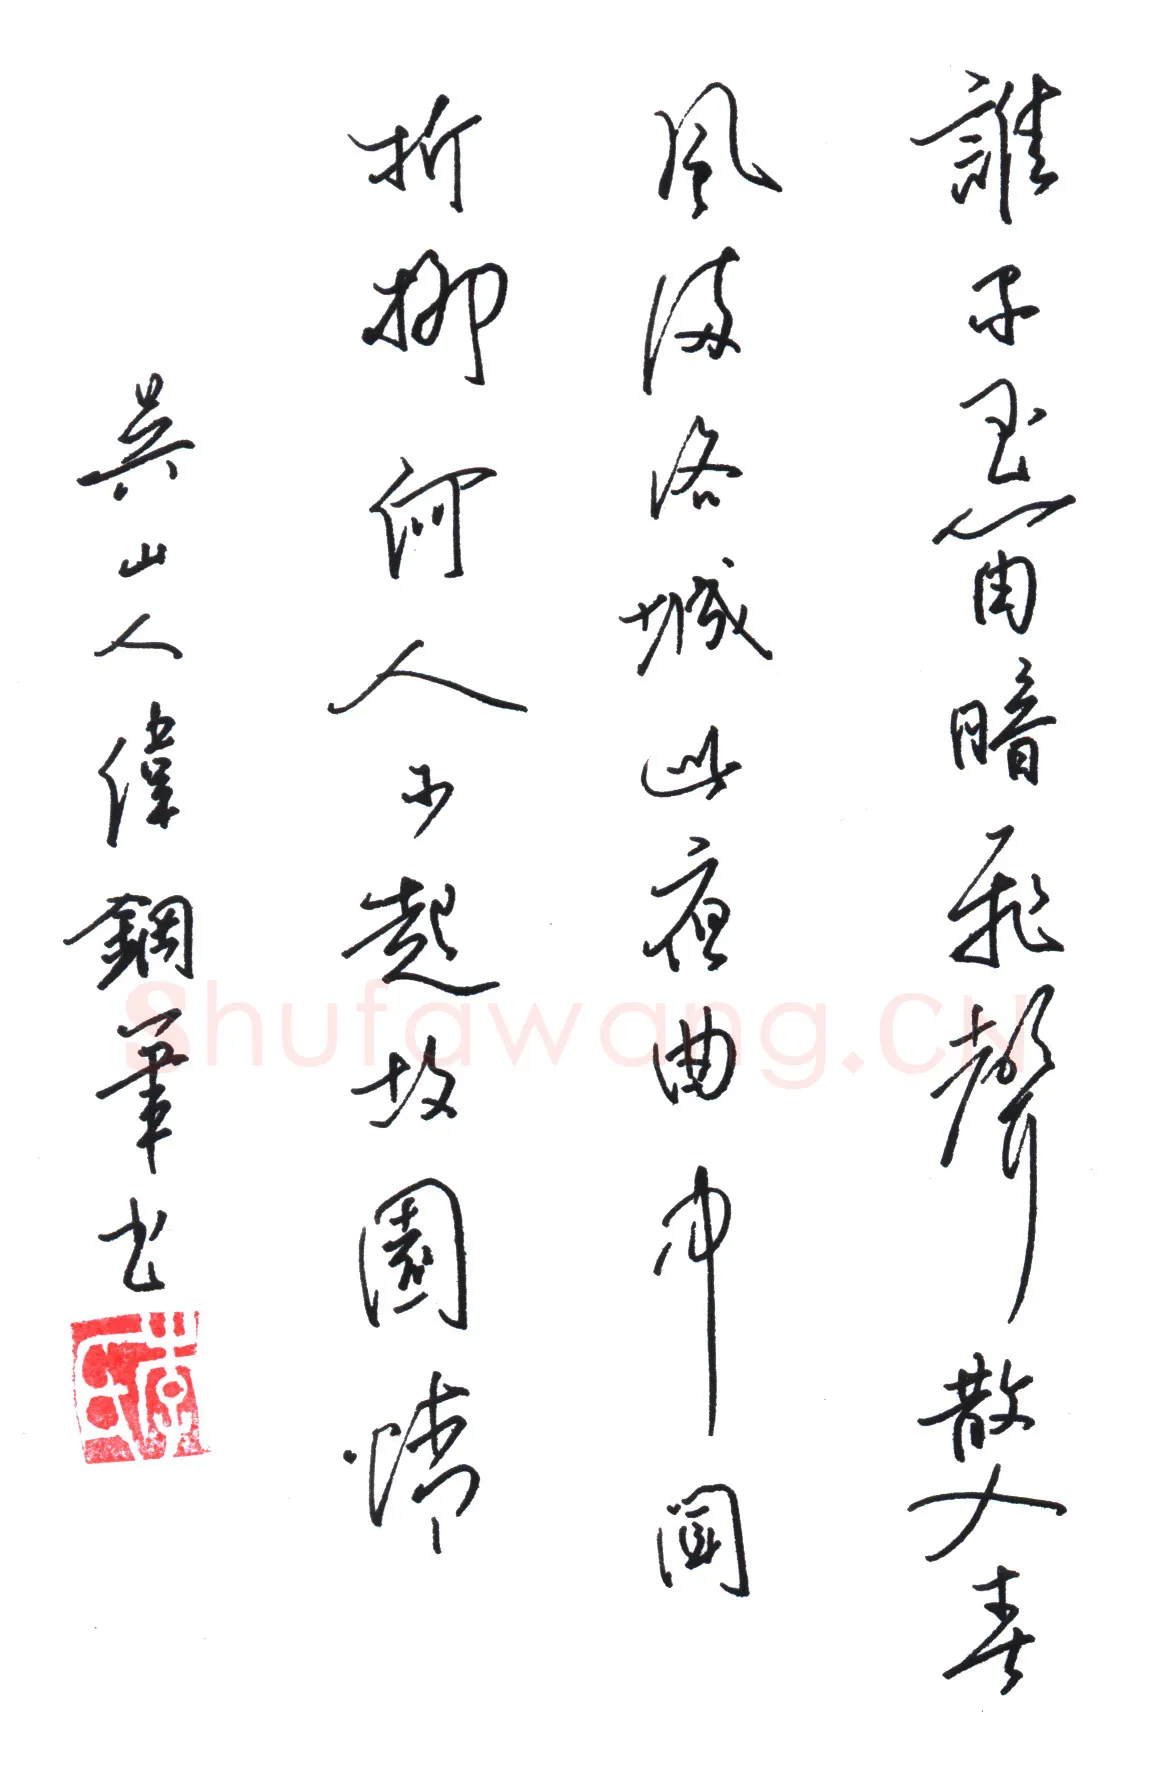 誰家玉笛暗飛聲散入春
風滿洛城此夜曲中聞
折柳何人不起故園情
吳山人偉鋼筆书
Shufawang.CN